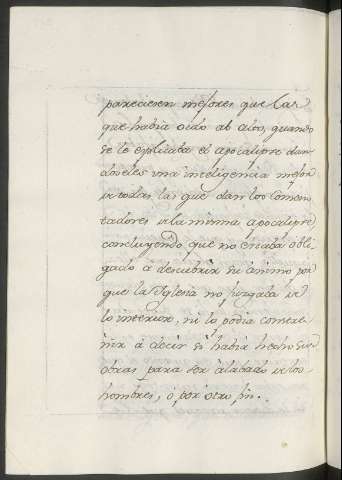 pareciesen mejores que las
que habia oido ab alio, quando
se le esplicaba el apocalipse dan
doseles una inteligencia mejor
de todas las que dan los Comen
tadores de la misma apocalipse
concluyendo que no estaba obli
gado a descubrir su animo por
que la Iglesia no juzgaba de
lo interior, ni lo podia constre
ñir à decir si habia hecho sus
obras para ser alabado de los
hombres, o por otro fin.